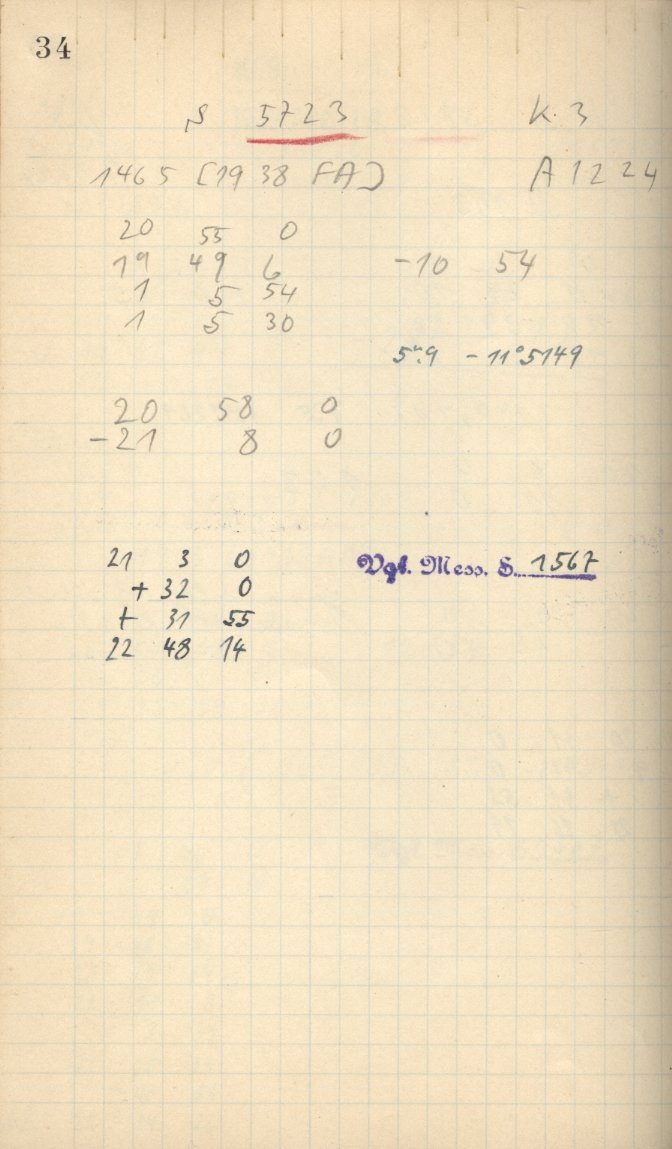 34
S 5723 K. 3
1465 [1938 FA] A 1224
20 55 0
19 49 6 -10 54
1 5 54
1 5 30
5m.9 -11°5149
20 58 0
-21 8 0
21 3 0 Vgl. Mess. S. 1567
+32 0
+ 31 55
22 48 14